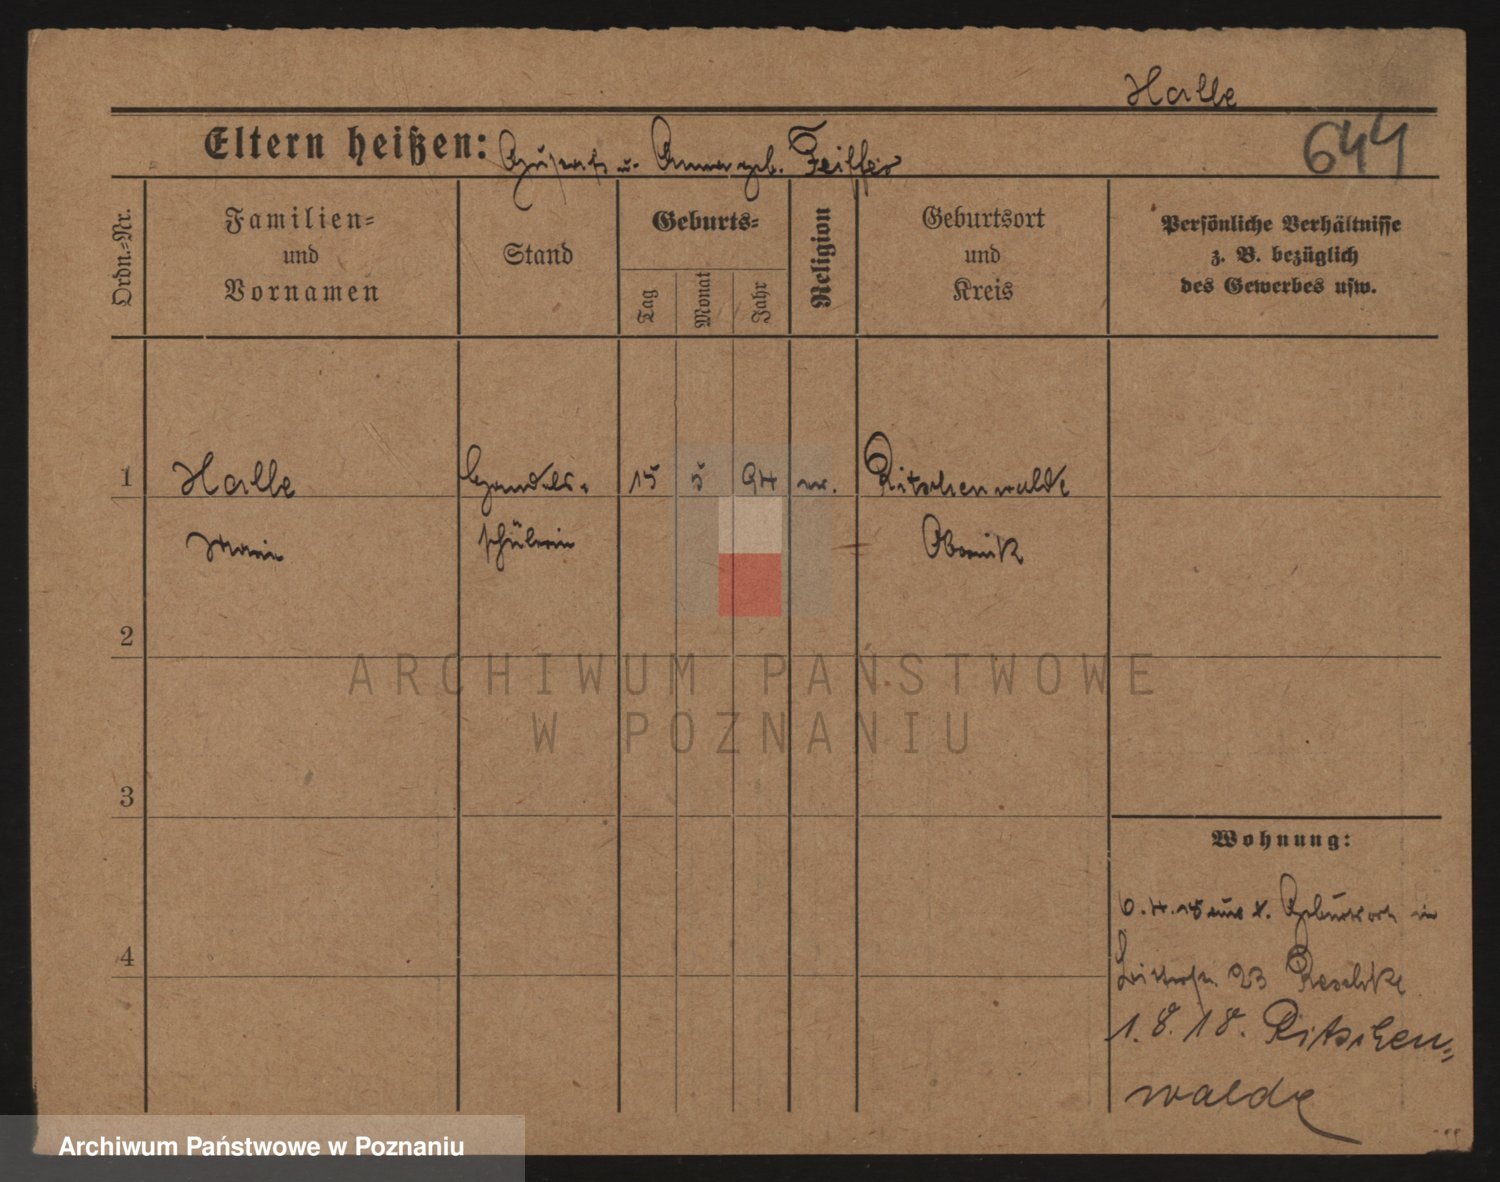 Halle
644
Eltern heißen: Gustav u. Anna geb. Feiffer
Ordn.-Nr.
Familien-
und
Vornamen
Stand
Geburts-
Tag
Monat
Jahr
Religion
Geburtsort
und
Kreis
Persönliche Verhältnisse
z. B. bezüglich
des Gewerbes usw.
1
Halle
Handels-
15
5
94
ev.
Ritschenwalde
Marie
schülerin
Obornik
2
ARCHIWUM PAŃSTWOWE
W POZNANIU
3
Wohnung:
6.4.18 aus d. Geburtsort in
4
23 Reschke
1.8.18. Ritschen-
walde
Archiwum Państwowe w Poznaniu